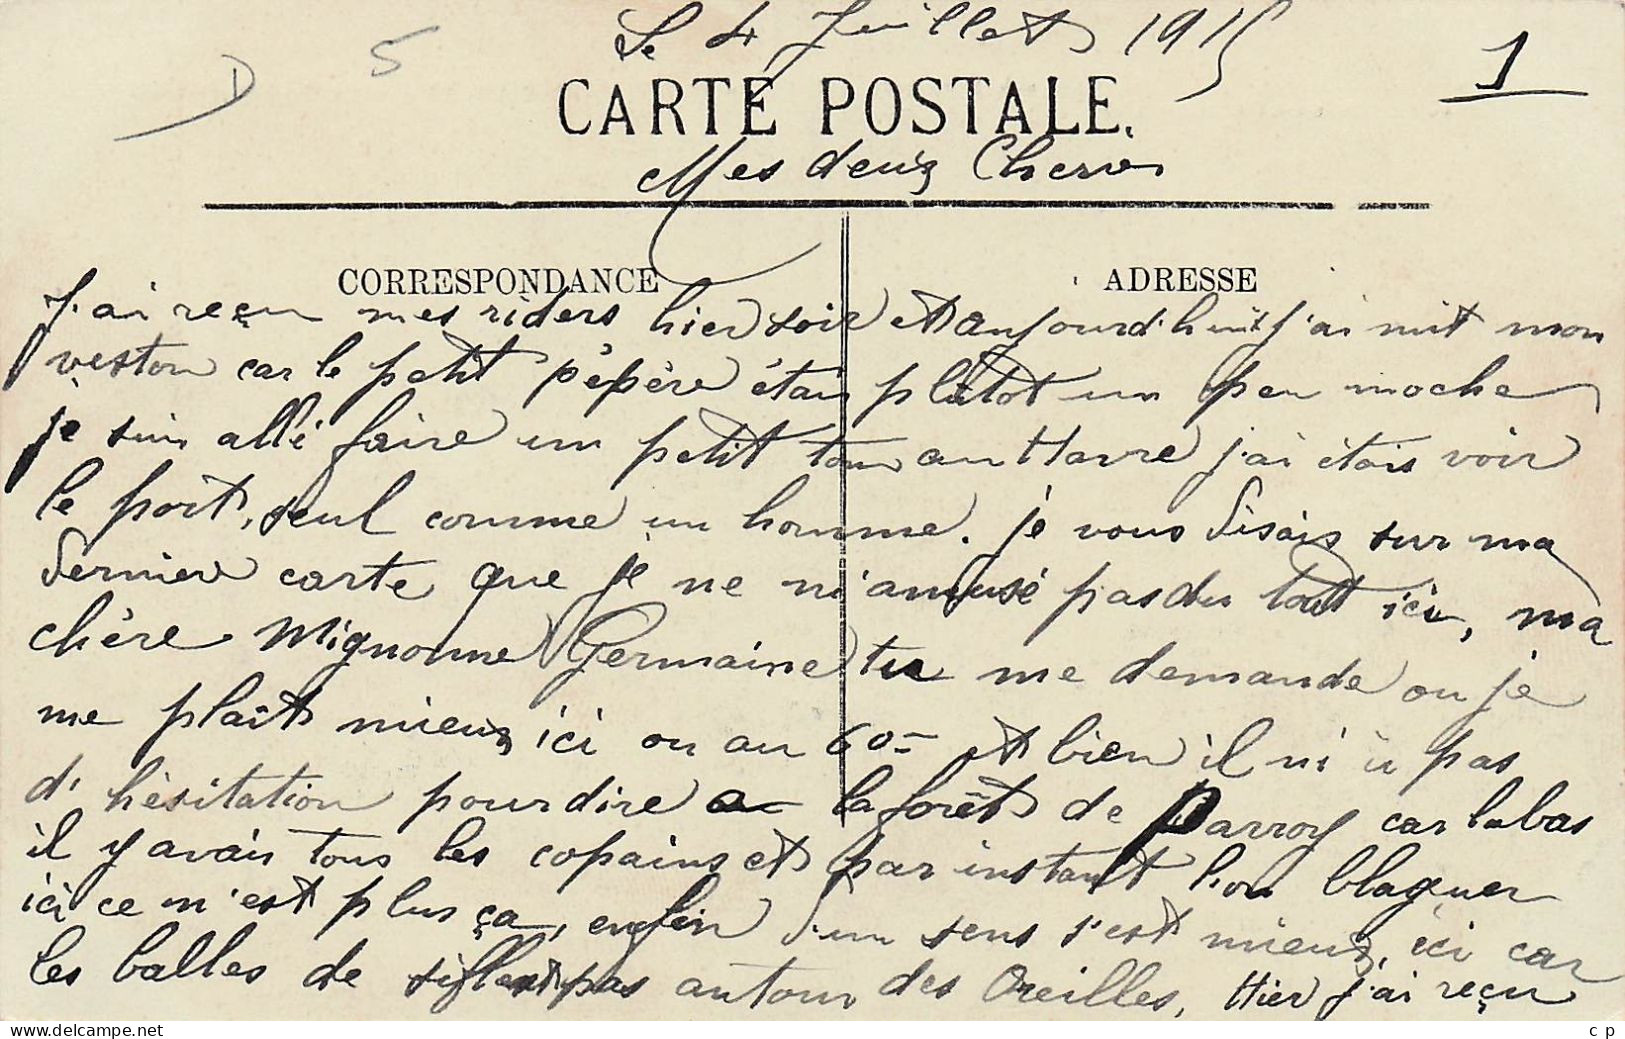 D 5
Le 4 Juillet 1915
1
CARTE POSTALE.
Mes deux Cheries
CORRESPONDANCE
ADRESSE
J'ai reçu mes riders hier soir et aujourd'hui j'ai mit mon
veston car le petit pépère étais plutot un peu moche
je suis allé faire un petit tour au Havre j'ai étais voir
le port, seul comme un homme. je vous disais sur ma
dernière carte que je ne m'amusé pas du tout ici, ma
chère Mignonne Germaine tu me demande ou je
me plait mieux ici ou au 60- et bien il ni à pas
d'hésitation pour dire la forêt de Parroy car labas
il y avais tous les copains et par instant l'on blaguer
ici ce n'est plus ça, enfin d'un sens s'est mieux, ici car
les balles de siflent pas autour des Oreilles, Hier j'ai reçu
c p